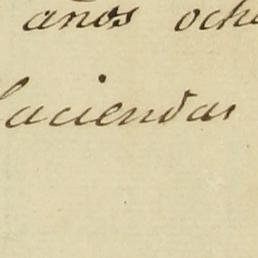 años och
haciendas